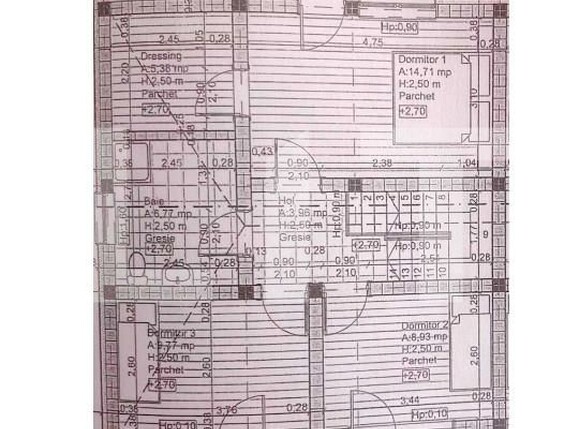 0,38
Hp:0,90
0,38
2,45
1,05
0,28
4,75
0,28
Dressing
A:5,38 mp
H:2,50 m
Parchet
+2,70
2,20
0,90
2,10
Dormitor 1
A:14,71 mp
H:2,50 m
Parchet
+2,70
3,10
0,38
2,45
0,28
0,43
0,90
2,10
2,38
1,04
Baie
A:6,77 mp
H:2,50 m
Gresie
+2,70
0,90
2,10
Hol
A:3,96 mp
H:2,50 m
Gresie
Hp:0,90 m
1 2 3 4 5 6 7 8
Hp:0,90 m
+2,70
Hp:0,90 m
1,77
9
14 13 12 11 10
0,13
0,28
0,90
0,90
2,10
2,10
2,45
0,28
0,28
0,28
0,28
Dormitor 3
A:9,77 mp
H:2,50 m
Parchet
+2,70
2,60
2,60
Dormitor 2
A:8,93 mp
H:2,50 m
Parchet
+2,70
2,60
0,38
3,76
0,28
3,44
0,28
Hp:0,10
Hp:0,10